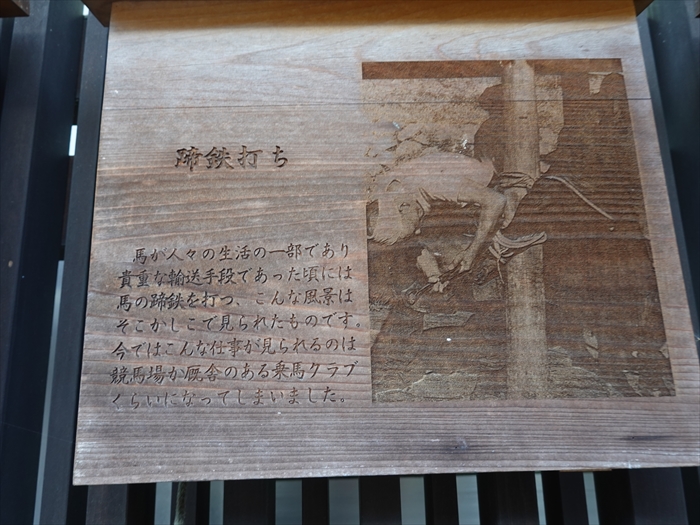 蹄鉄打ち
馬が人々の生活の一部であり
貴重な輸送手段であった頃には
馬の蹄鉄を打つ、こんな風景は
そこかしこで見られたものです。
今ではこんな仕事が見られるのは
競馬場か厩舎のある乗馬クラブ
くらいになってしまいました。